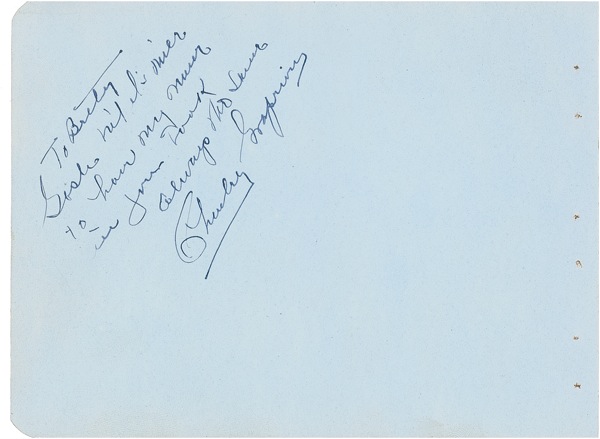 To Betty
Gosh
to have my name
in your Book
always the same
Charley Grapewin